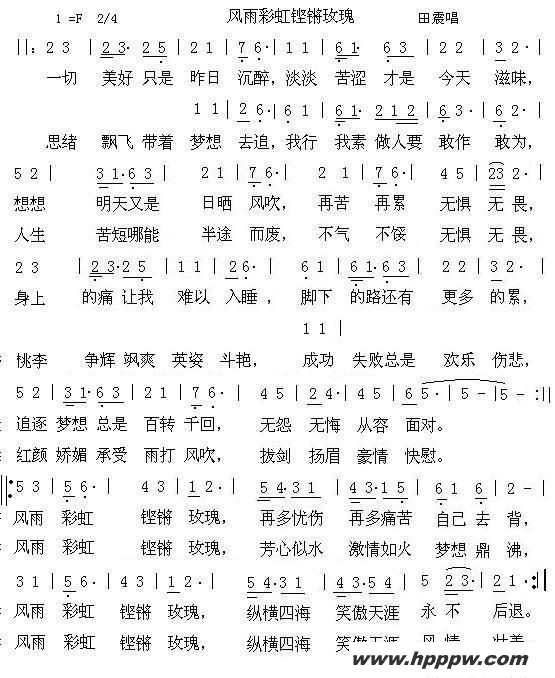 风雨彩虹铿锵玫瑰
1 =F 2/4 田震唱
||: 2 3 | 2 3· 2 5 | 2 1 | 7 6· | 2 1 | 6 1· | 6 3 | 2 2 | 3 2· |
一切 美好 只是 昨日 沉醉，淡淡 苦涩 才是 今天 滋味，
1 1 | 2 6· | 6 1 | 6 1· | 2 1 2 | 6 3· | 6 2· |
思绪 飘飞 带着 梦想 去追，我行 我素 做人要 敢作 敢为，
5 2 | 3 1· 6 3 | 2 1 | 7 6· | 2 1 | 7 6· | 4 5 | 23 2· |
想想 明天又是 日晒 风吹， 再苦 再累 无惧 无畏，
人生 苦短哪能 半途 而废， 不气 不馁 无惧 无畏，
2 3 | 2 3· 2 5 | 1 1 | 2 6· | 6 1 | 6 1· 6 3 | 2 2 | 3 2· |
身上 的痛 让我 难以 入睡， 脚下 的路还有 更多 的累，
1 1 |
桃李 争辉 飒爽 英姿 斗艳， 成功 失败总是 欢乐 伤悲，
5 2 | 3 1· 6 3 | 2 1 | 7 6· | 4 5 | 2 4· | 4 5 | 6 5· | 5 - | 5 - :||
追逐 梦想 总是 百转 千回， 无怨 无悔 从容 面对。
红颜 娇媚 承受 雨打 风吹， 拔剑 扬眉 豪情 快慰。
||: 5 3 | 5 6· | 4 3 | 1 2· | 5 4· 3 1 | 4 3· 1 5 | 6 1 | 6 | 2 - |
风雨 彩虹 铿锵 玫瑰， 再多忧伤 再多痛苦 自己 去 背，
风雨 彩虹 铿锵 玫瑰， 芳心似水 激情如火 梦想 鼎 沸，
3 1 | 5 6· | 4 3 | 1 2· | 5 4· 3 1 | 4 3· 5 1 | 5 | 2 3· | 2 1· :|
风雨 彩虹 铿锵 玫瑰， 纵横四海 笑傲天涯 永 不 后退。
风雨 彩虹 铿锵 玫瑰， 纵横四海 笑傲天涯
www.hpppw.com